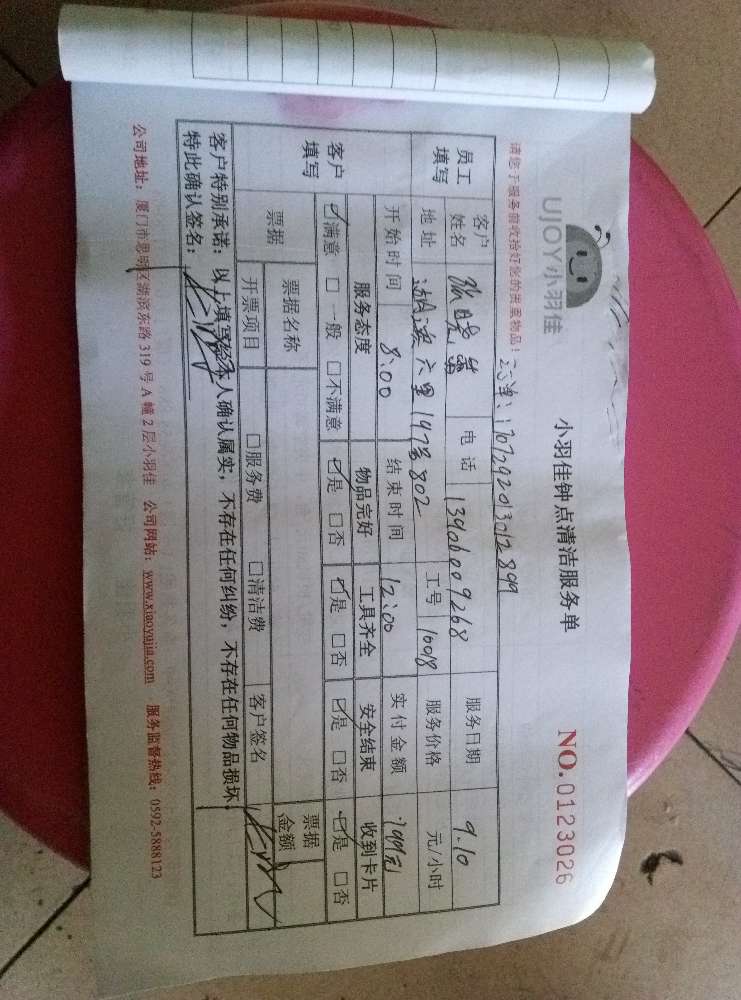 UJOY小羽佳
小羽佳钟点清洁服务单
NO.0123026
请您于服务前收拾好您的贵重物品!
员工填写
客户姓名 电话 13906009268 服务日期 9.10
地址 六里147号802 工号 16018 服务价格 元/小时
开始时间 8:00 结束时间 12:00 实付金额
客户填写
服务态度 物品完好 工具齐全 安全结束 收到卡片
☑满意 □一般 □不满意 ☑是 □否 ☑是 □否 ☑是 □否 ☑是 □否
票据 票据名称 票据金额
开票项目 □服务费 □清洁费 客户签名
客户特别承诺:以上填写经本人确认属实,不存在任何纠纷,不存在任何物品损坏.
特此确认签名:
公司地址:厦门市思明区湖滨东路319号A幢2层小羽佳 公司网站:www.xiaoyujia.com 服务监督热线:0592-5888123